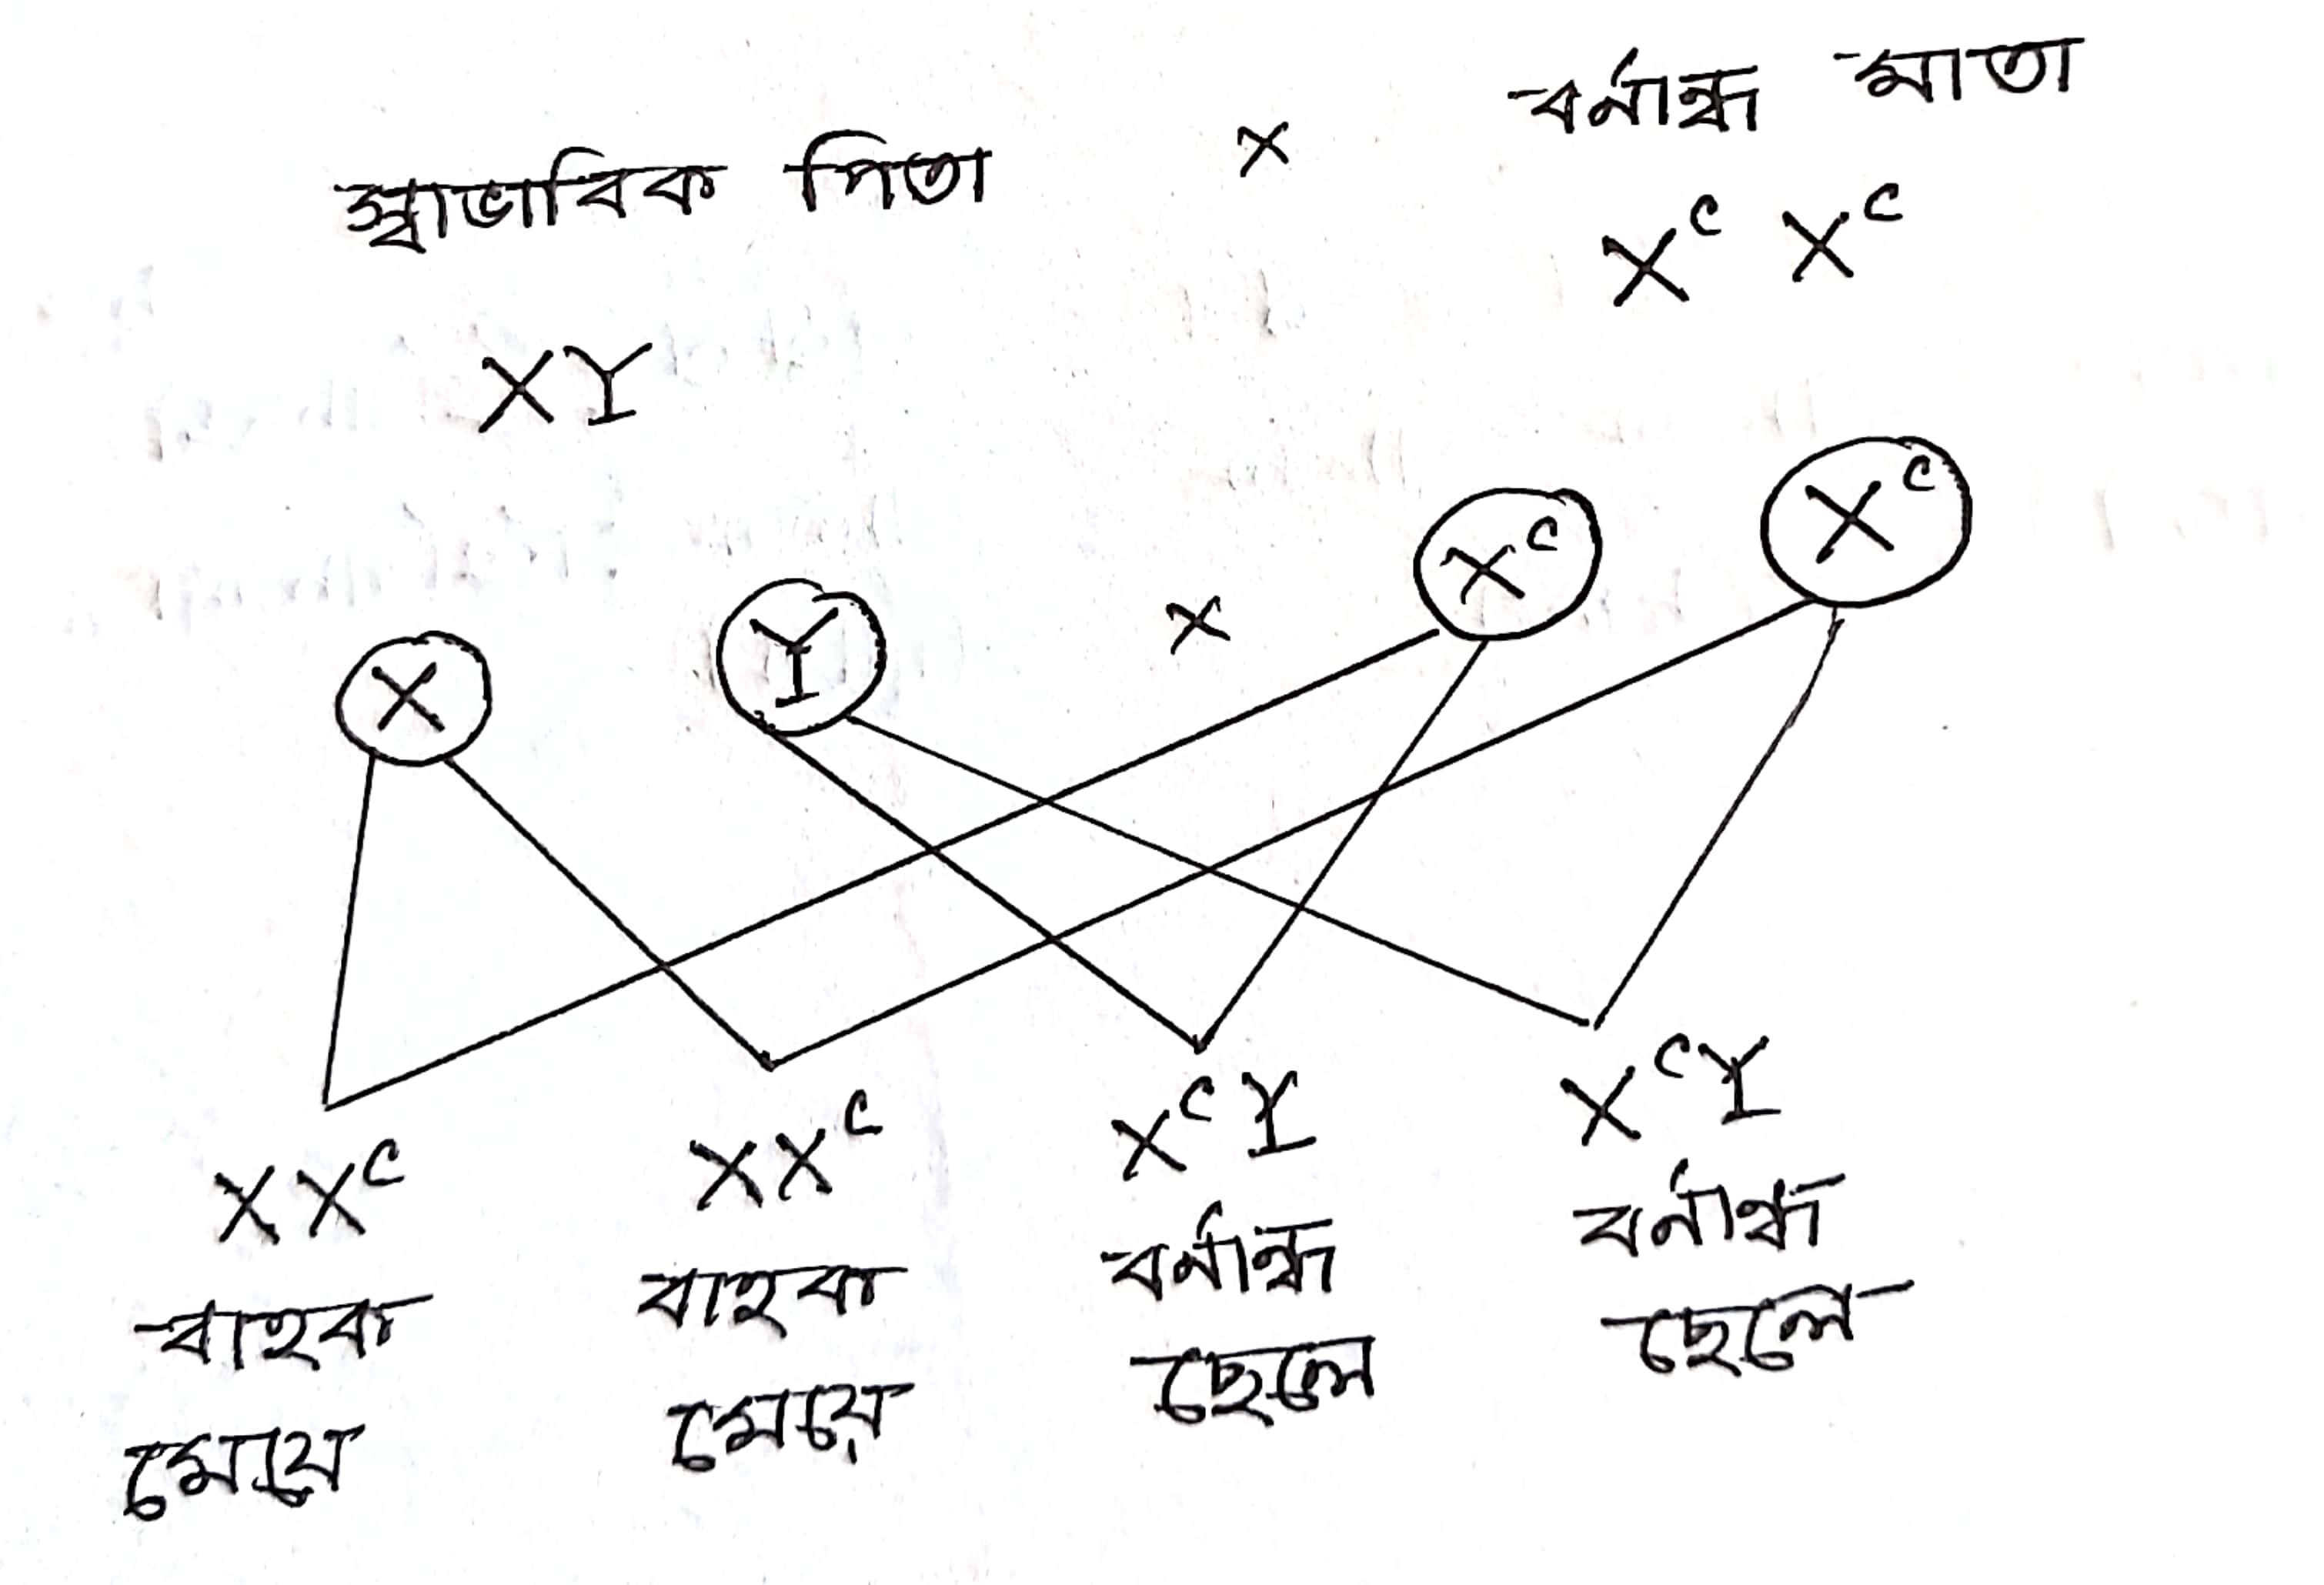 স্বাভাবিক পিতা × বর্নান্ধ মাতা
XY X^c X^c
X Y × X^c X^c
XX^c XX^c X^cY X^cY
বাহক বাহক বর্নান্ধ বর্নান্ধ
মেয়ে মেয়ে ছেলে ছেলে